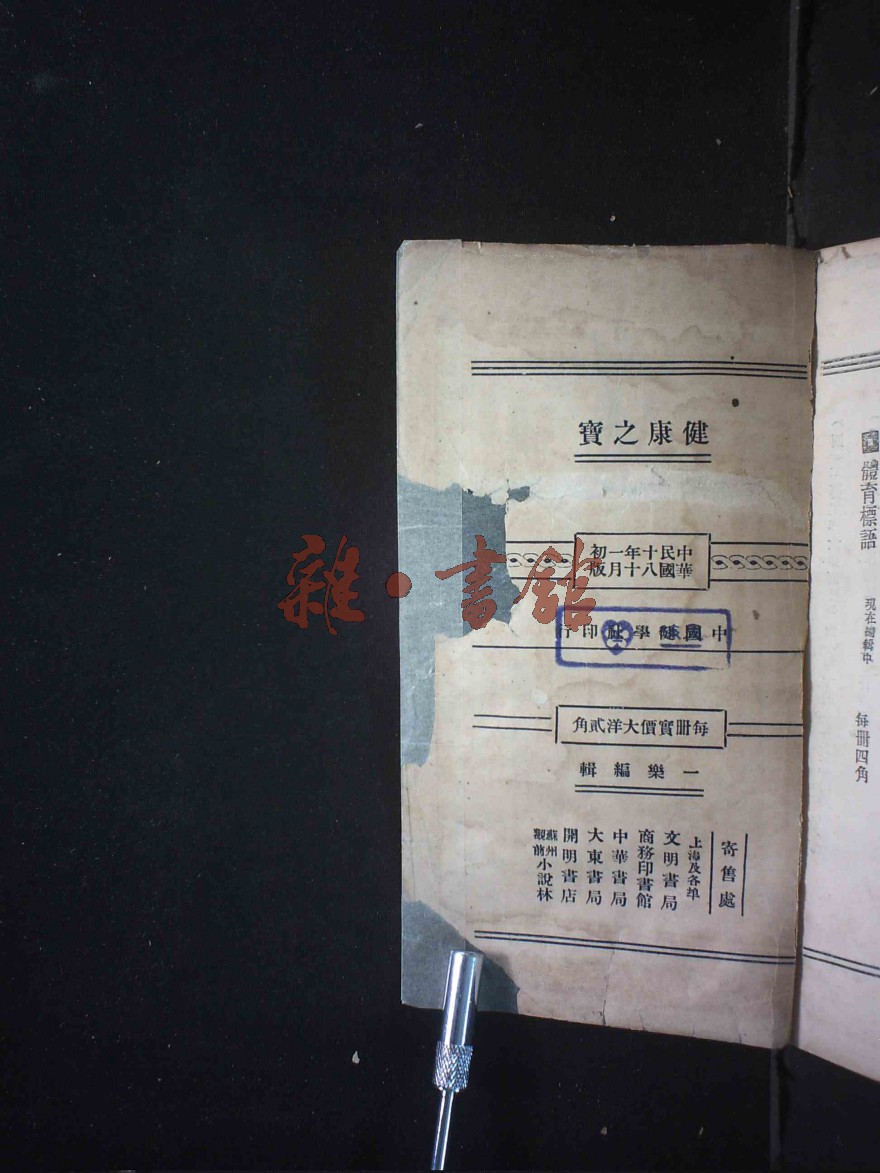 體育標語 現在編輯中 每冊四角
健康之寶
中華民國十八年十一月初版
中國健學社印行
每冊實價大洋貳角
一樂編輯
寄售處
上海及各埠
文明書局
商務印書館
中華書局
大東書局
開明書店
蘇州觀前小說林
雜·書館